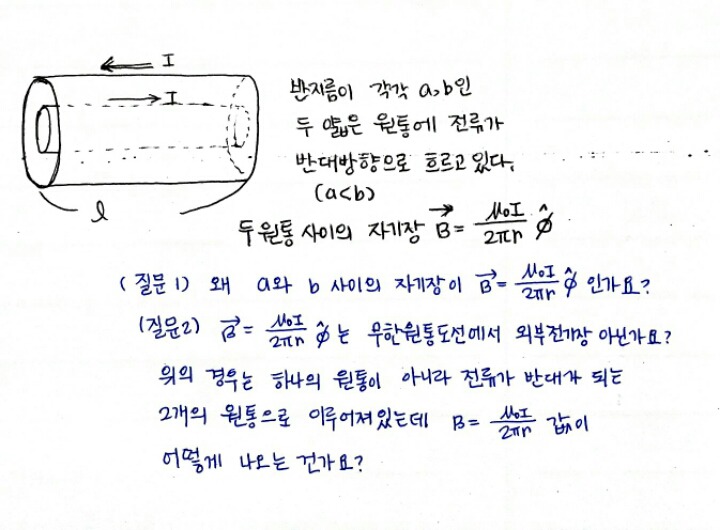 I
I
반지름이 각각 a, b인
두 얇은 원통에 전류가
반대방향으로 흐르고 있다.
(a<b)
l
두 원통 사이의 자기장 B⃗ = μ₀I/2πr φ̂
(질문1) 왜 a와 b 사이의 자기장이 B⃗ = μ₀I/2πr φ̂ 인가요?
(질문2) B⃗ = μ₀I/2πr φ̂ 는 무한원통도선에서 외부전기장 아닌가요?
위의 경우는 하나의 원통이 아니라 전류가 반대가 되는
2개의 원통으로 이루어져있는데 B = μ₀I/2πr 값이
어떻게 나오는 건가요?